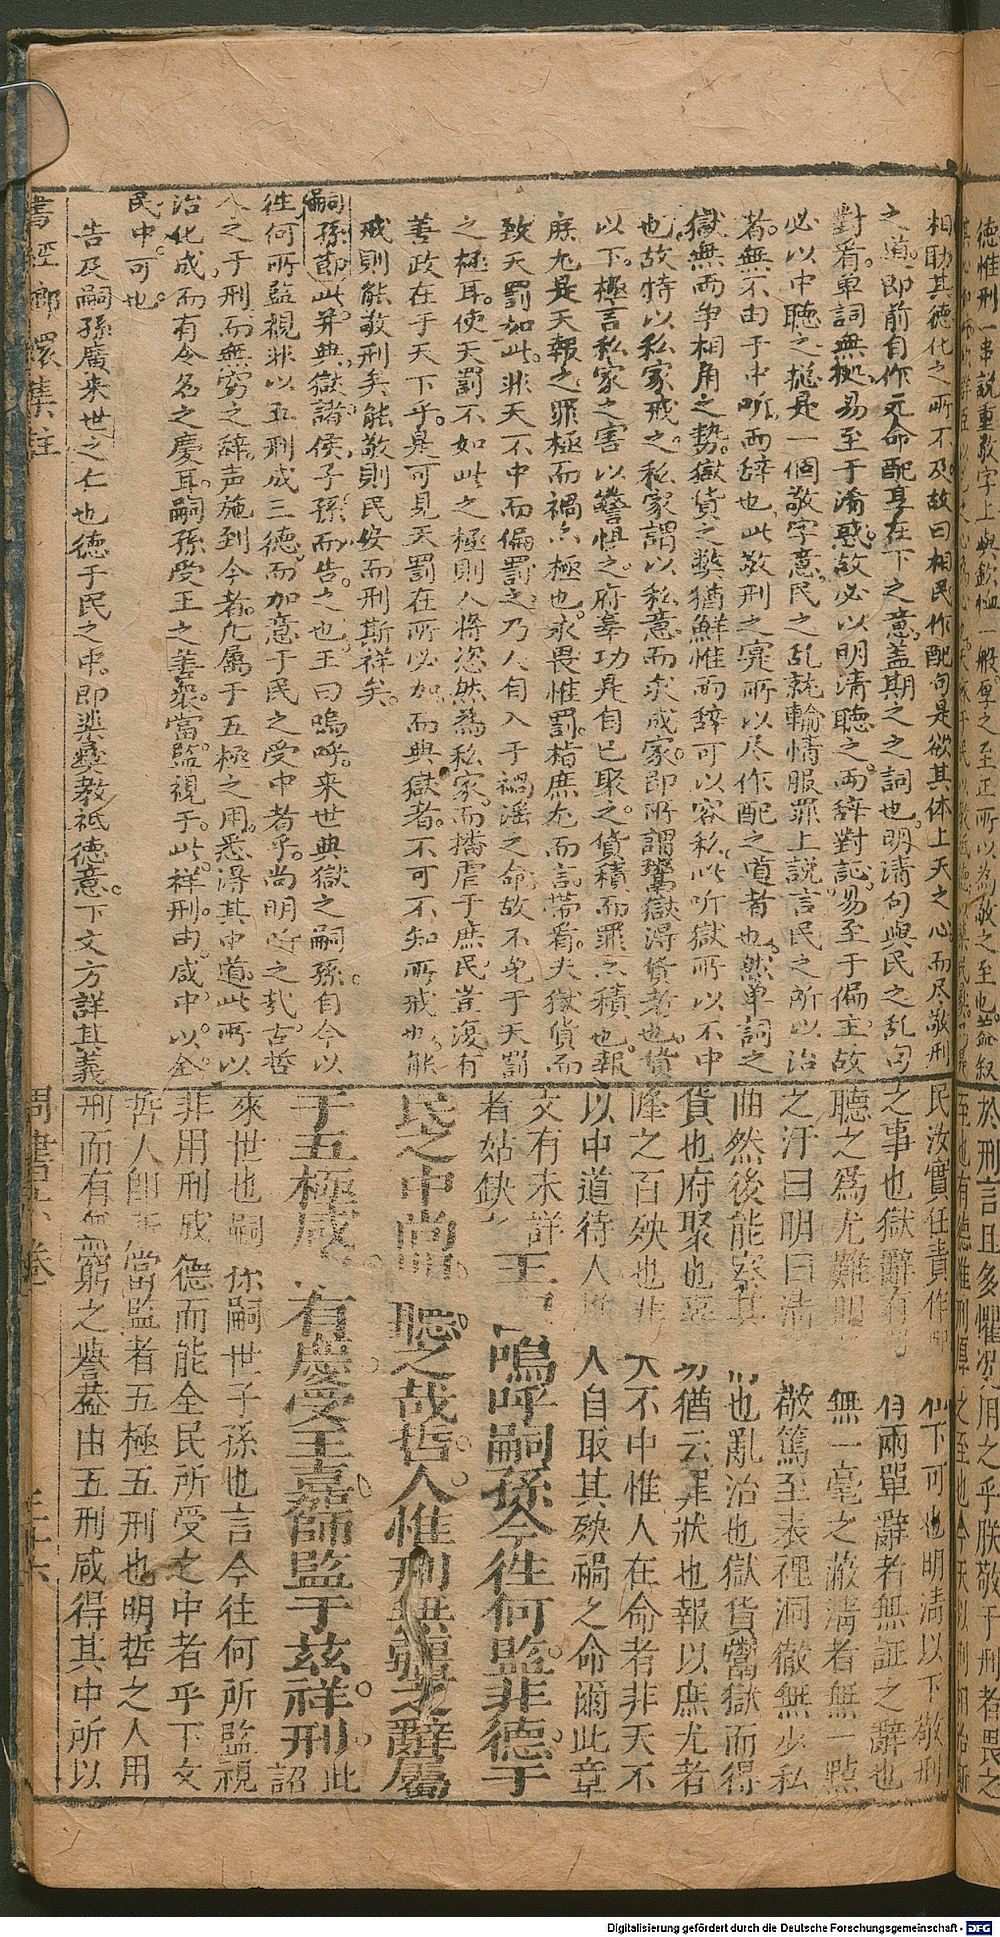 相助其德化之所不及故曰相民作配句是欲其体上天之心而尽敬刑
之道即前自作元命配享在下之意盖期之之詞也明清句與民之乱句
對看单詞無拠易至于淆惑故必以明清聽之両辞對訟易至于偏主故
必以中聽之摠是一個敬字意民之乱就輸情服罪上説言民之所以治
者無不由于中听而辞也此敬刑之寔所以尽作配之道者也然单詞之
獄無両争相角之勢獄貨之獘猶鮮惟両辞可以容私此听獄所以不中
也故特以私家戒之私家謂以私意而求成家即所謂鬻獄淂貨者也貨
以下極言私家之害以警惧之府辜功是自已聚之貨積而罪亦積也報
庶尤是天報之罪極而禍亦極也永畏惟罰指庶尤而言带看夫獄貨而
致天罰如此非天不中而偏罰之乃人自入于禍滛之命故不免于天罰
之極耳使天罰不如此之極則人将恣然為私家而播虐于庶民豈復有
善政在于天下乎是可見天罰在所必加而典獄者不可不知所戒也能
戒則能敬刑矣能敬則民安而刑斯祥矣
嗣孫節此并典獄諸侯子孫而告之也王曰嗚呼来世典獄之嗣孫自今以
徃何所監視非以五刑成三德而加意于民之受中者乎尚明听之哉古哲
人之于刑而無窮之辞声施到今者凢属于五極之用悉淂其中道此所以
治化成而有令名之慶耳嗣孫受王之善衆當監視于此祥刑由咸中以全
民中可也
告及嗣孫廣来世之仁也德于民之中即棐彛教祗德意下文方詳其義
民汝實任責作 仙下可也明清以下敬刑
之事也獄辭有 有兩單辭者無証之辭也
聽之爲尤難明 無一毫之蔽清者無一點
之汙曰明曰清 敬篤至表裡洞徹無少私
曲然後能察其 也亂治也獄貨鬻獄而得
貨也府聚也辜 功猶云罪狀也報以庶尤者
降之百殃也非 天不中惟人在命者非天不
以中道待人惟 人自取其殃禍之命爾此章
文有未詳
者姑缺 王曰嗚呼嗣孫今徃何監非德于
民之中尚明聽之哉哲人惟刑無疆之辭屬
于五極咸 有慶受王嘉師監于茲祥刑 此詔
來世也嗣 孫嗣世子孫也言今往何所監視
非用刑成 德而能全民所受之中者乎下文
哲人即所 當監者五極五刑也明哲之人用
刑而有無窮之譽葢由五刑咸得其中所以
書經嫏嬛集註
周書 六卷
Digitalisierung gefördert durch die Deutsche Forschungsgemeinschaft - DFG